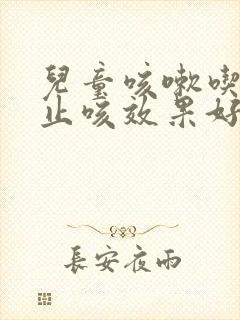 兒童咳嗽喫
止咳效果好
長安夜雨